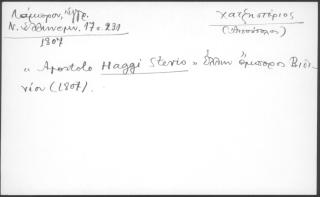 Λάμπρου, Νγγρ.
Ν. Ἑλληνομν. 17 σ. 231
1807
Χατζηστέριος
(Ἀπόστολος)
« Apostolo Haggi Sterio » Ἕλλην ἔμπορος Βιέν-
νην (1807).